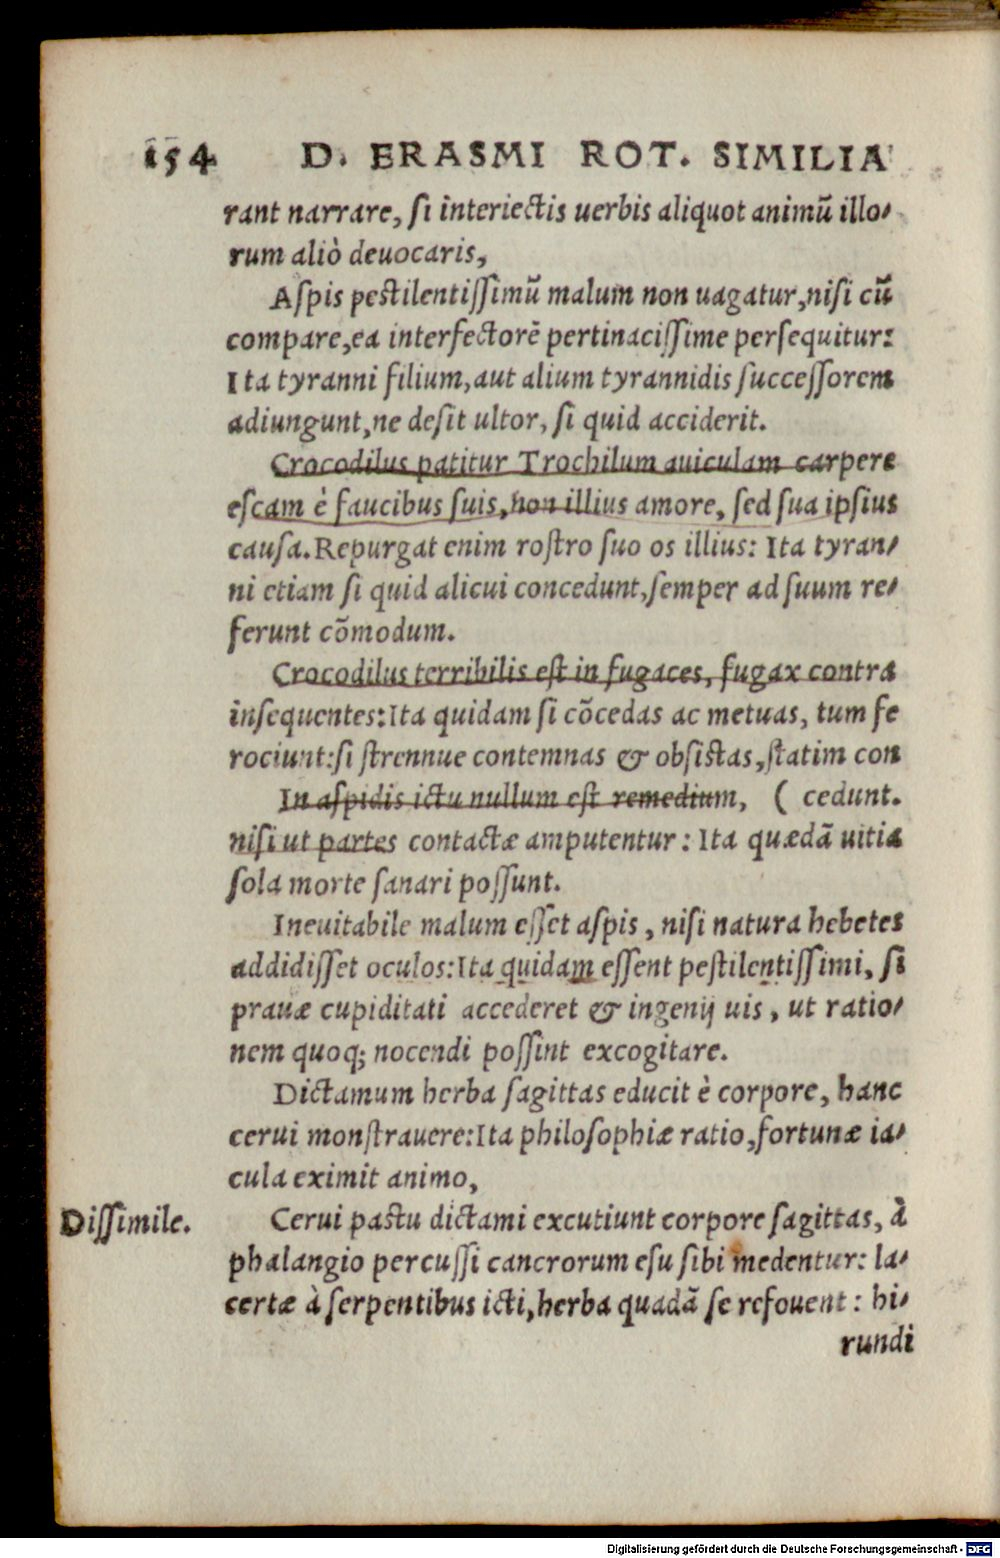 154 D. ERASMI ROT. SIMILIA
rant narrare, ſi interiectis uerbis aliquot animũ illo⸗
rum aliò deuocaris,
Aſpis peſtilentiſſimũ malum non uagatur, niſi cũ
compare, ea interfectorẽ pertinaciſſime perſequitur:
Ita tyranni filium, aut alium tyrannidis ſucceſſorem
adiungunt, ne deſit ultor, ſi quid acciderit.
Crocodilus patitur Trochilum auiculam carpere
eſcam è faucibus ſuis, non illius amore, ſed ſua ipſius
cauſa. Repurgat enim roſtro ſuo os illius: Ita tyran⸗
ni etiam ſi quid alicui concedunt, ſemper ad ſuum re⸗
ferunt cõmodum.
Crocodilus terribilis eſt in fugaces, fugax contra
inſequentes: Ita quidam ſi cõcedas ac metuas, tum fe
rociunt: ſi ſtrennue contemnas & obſiſtas, ſtatim con
In aſpidis ictu nullum eſt remedium, ( cedunt.
niſi ut partes contactæ amputentur: Ita quædã uitia
ſola morte ſanari poſſunt.
Ineuitabile malum eſſet aſpis, niſi natura hebetes
addidiſſet oculos: Ita quidam eſſent peſtilentiſſimi, ſi
prauæ cupiditati accederet & ingenij uis, ut ratio⸗
nem quoq; nocendi poſſint excogitare.
Dictamum herba ſagittas educit è corpore, hanc
cerui monſtrauere: Ita philoſophiæ ratio, fortunæ ia⸗
cula eximit animo,
Diſſimile. Cerui paſtu dictami excutiunt corpore ſagittas, à
phalangio percuſſi cancrorum eſu ſibi medentur: la⸗
certæ à ſerpentibus icti, herba quadã ſe refouent: hi⸗
rundi
Digitalisierung gefördert durch die Deutsche Forschungsgemeinschaft - DFG